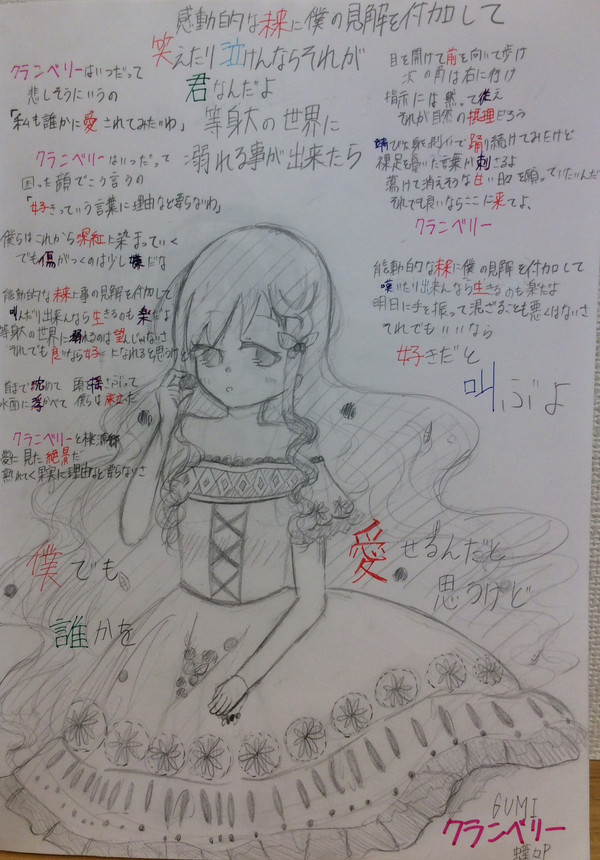 感動的な未来に僕の見解を付加して
笑えたり泣けんならそれが
君なんだよ
等身大の世界に
溺れる事が出来たら
クランベリーはいつだって
悲しそうにいうの
「私も誰かに愛されてみたいわ」
クランベリーはいつだって
困った顔でこう言うの
「好きっていう言葉に理由など要らないわ」
僕らはこれから深紅に染まっていく
でも傷がつくのは少し嫌だな
能動的な未来に事の見解を付加して
叫んだり出来んなら生きるのも楽だよ
等身大の世界に溺れるのは望んじゃないさ
それでも良いなら好きになれると思うけど
水面に浮かべて 僕らは
クランベリーと
夢に見た絶景だ
熟れてく果実に理由など要らないさ
目を開けて前を向いて歩け
次の角は右に行け
指示には黙って従え
それが自然の摂理だろう
踊り続けてみたけど
裸足を 言葉が刺さるよ
蕩けて消えそうな甘い日々を願っていたいんだ
それでも良いならここに来てよ、
クランベリー
能動的な未来に僕の見解を付加して
嘆いたり出来んなら生きるのも楽だよ
明日に手を振って混ざることも悪くはないさ
それでもいいなら
好きだと
叫ぶよ
僕でも
誰かを
愛せるんだと
思うけど
GUMI
クランベリー
蝶々P